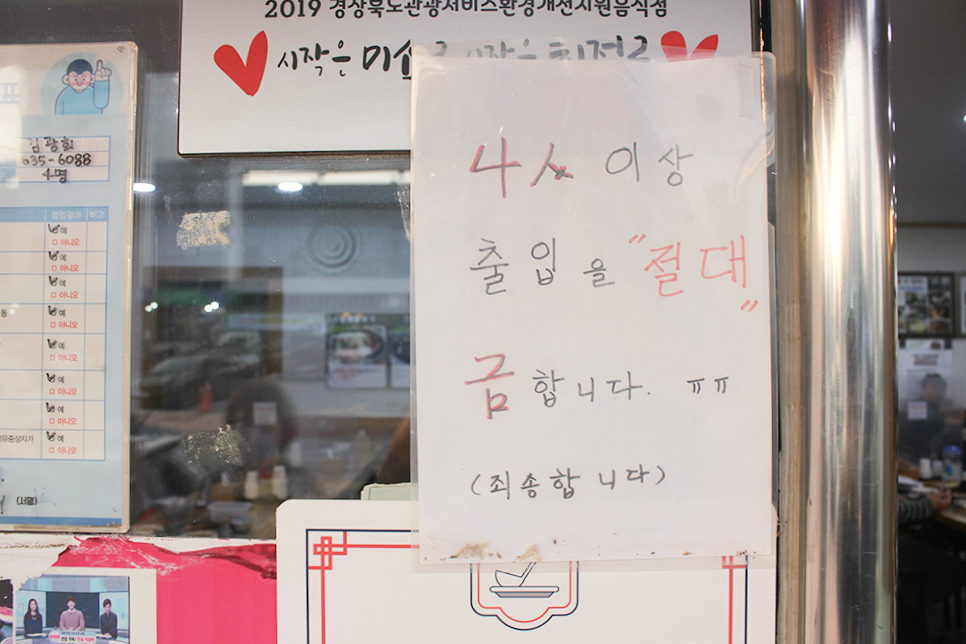 2019 경상북도관광서비스환경개선지원음식점
시작은 미소로
김광희
635-6088
4명
점검결과 비고
예
아니오
예
아니오
예
아니오
예
아니오
예
아니오
예
아니오
예
아니오
예
아니오
(서명)
4人 이상
출입을 "절대"
금합니다. ㅠㅠ
(죄송합니다)